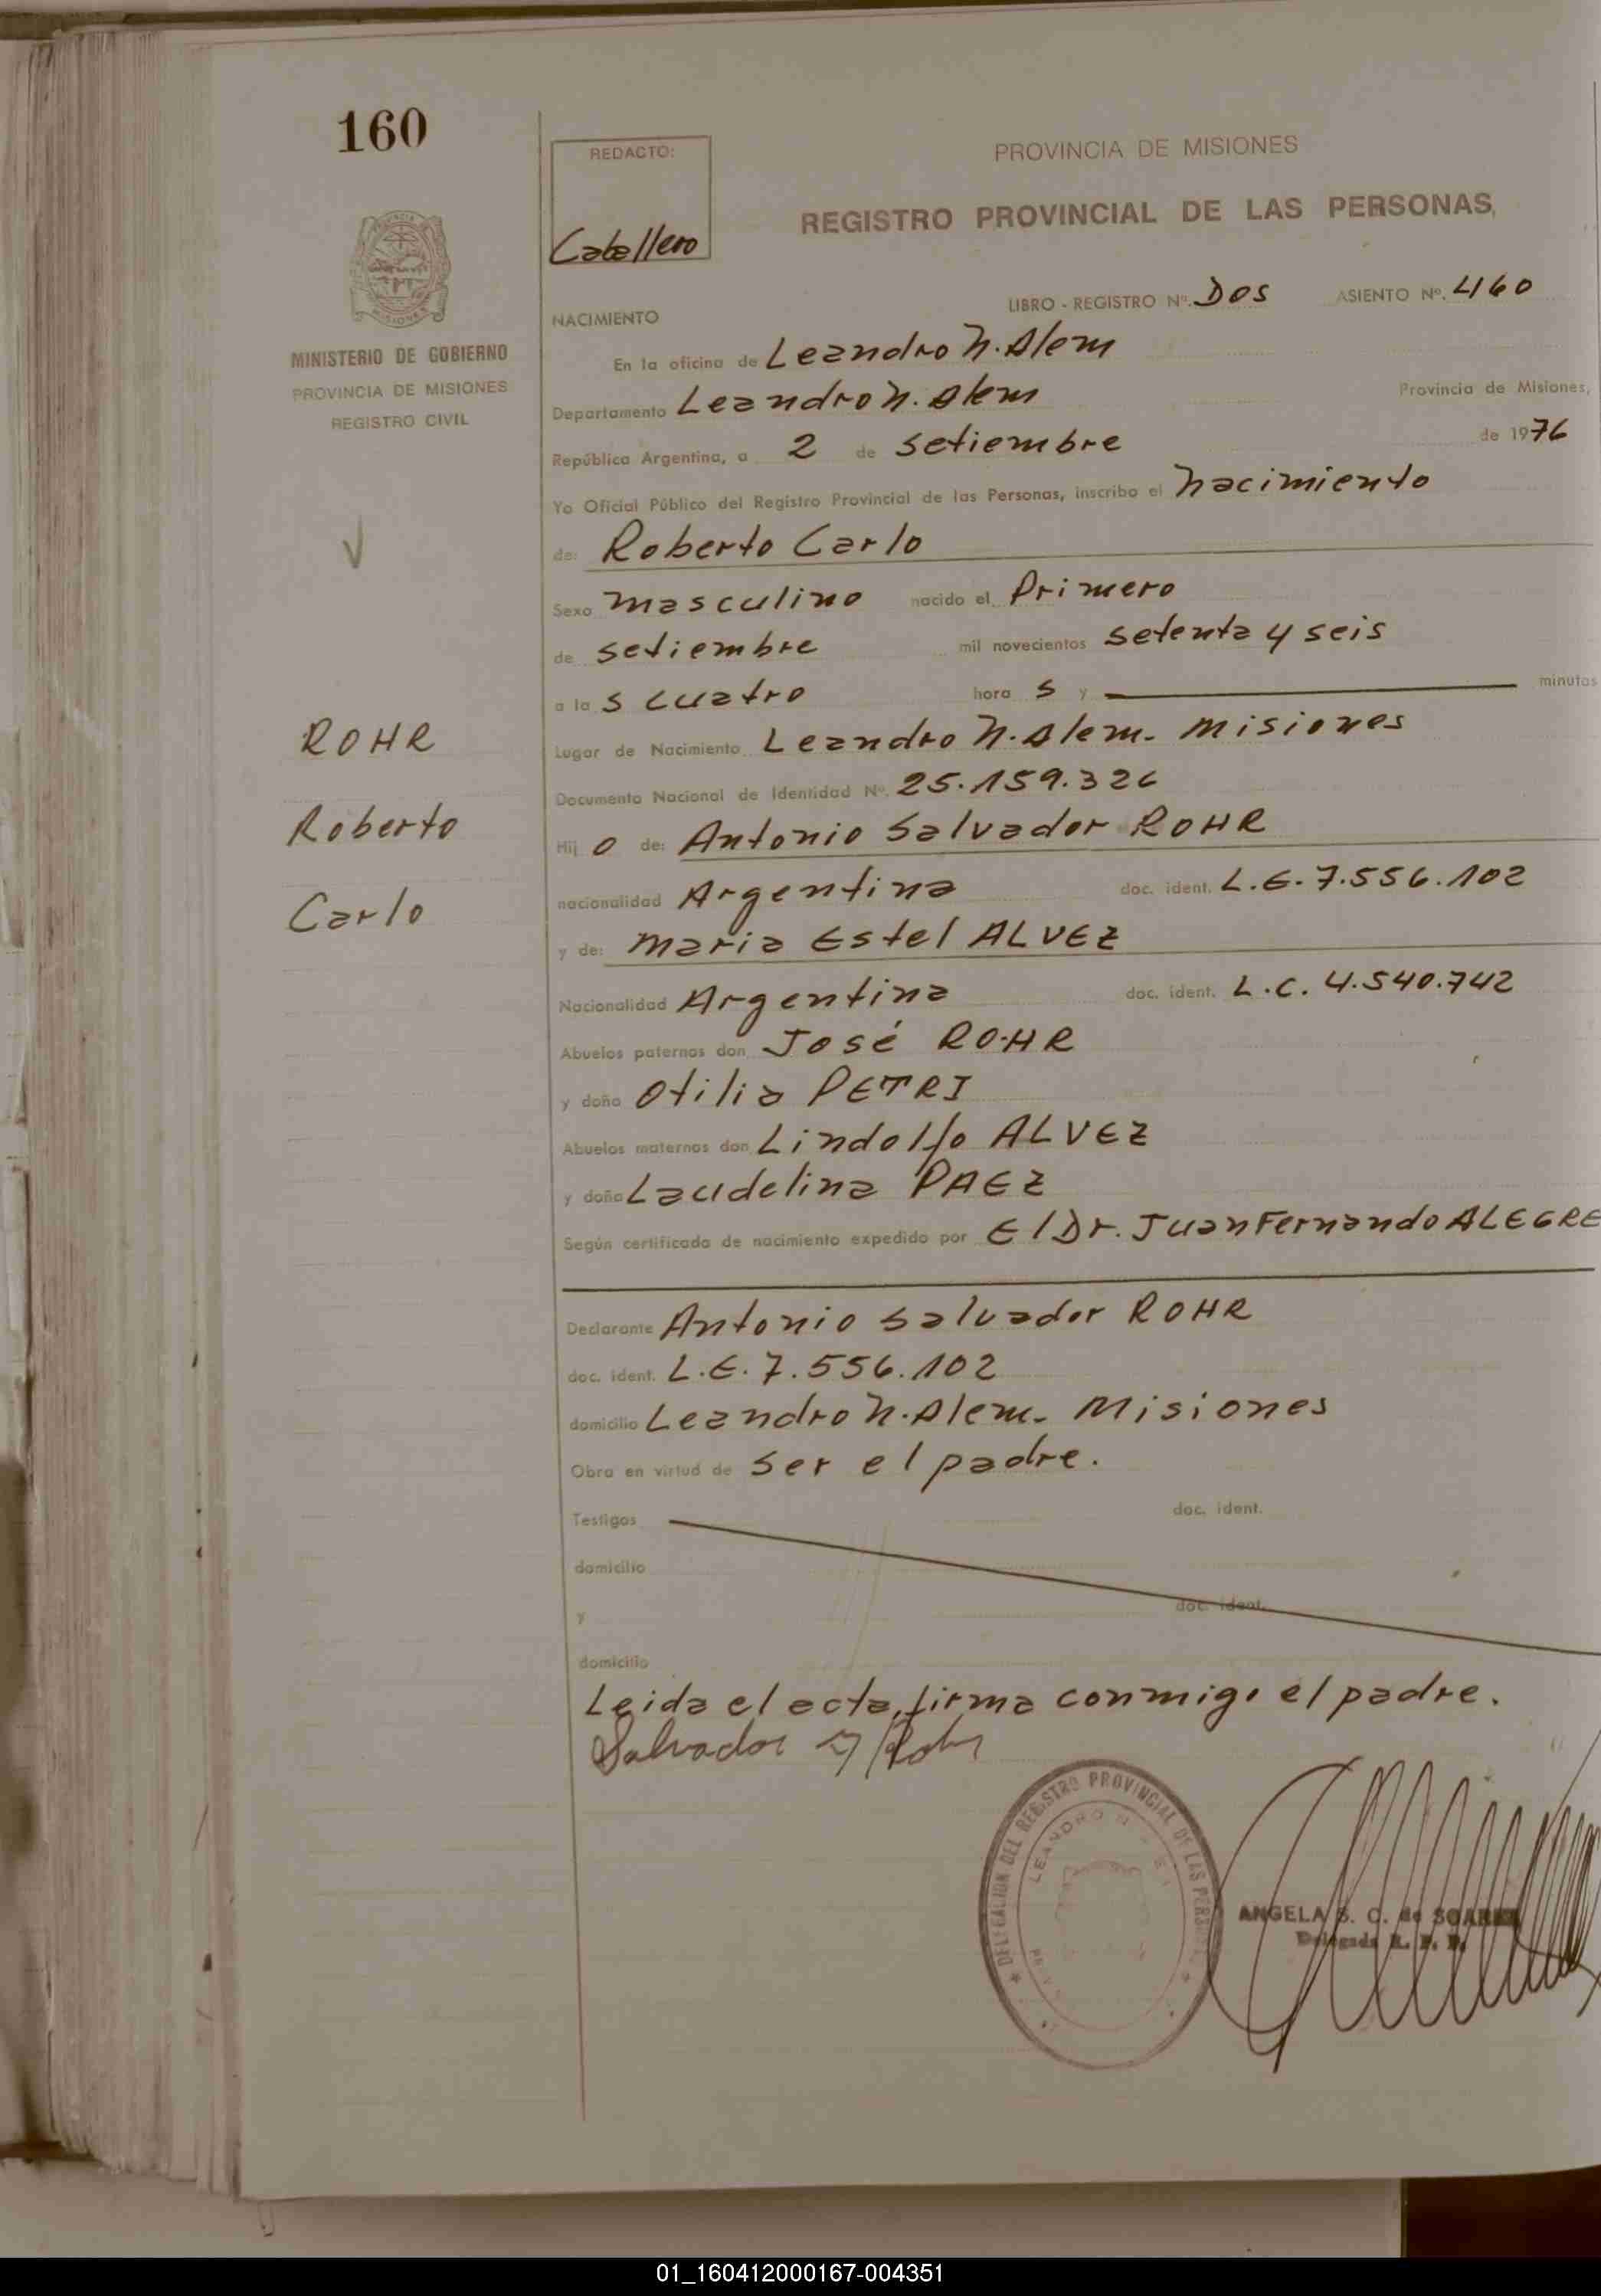 160
REDACTO:
Caballero
PROVINCIA DE MISIONES
REGISTRO PROVINCIAL DE LAS PERSONAS
LIBRO - REGISTRO Nº. Dos ASIENTO Nº. 460
NACIMIENTO
MINISTERIO DE GOBIERNO
PROVINCIA DE MISIONES
REGISTRO CIVIL
En la oficina de Leandro N. Alem
Departamento Leandro N. Alem Provincia de Misiones,
República Argentina, a 2 de Setiembre de 1976
Yo Oficial Público del Registro Provincial de las Personas, inscribo el nacimiento
de: Roberto Carlo
Sexo masculino nacido el Primero
de setiembre mil novecientos setenta y seis
a la s cuatro hora s y minutos
Lugar de Nacimiento Leandro N. Alem - Misiones
Documento Nacional de Identidad Nº. 25.159.326
Hij o de: Antonio Salvador ROHR
nacionalidad Argentina doc. ident. L.E. 7.556.102
y de: Maria Estel ALVEZ
Nacionalidad Argentina doc. ident. L.C. 4.540.742
Abuelos paternos don José ROHR
y doña Otilia PETRI
Abuelos maternos don Lindolfo ALVEZ
y doña Laudelina PAEZ
Según certificado de nacimiento expedido por El Dr. Juan Fernando ALEGRE
ROHR
Roberto
Carlo
Declarante Antonio Salvador ROHR
doc. ident. L.E. 7.556.102
domicilio Leandro N. Alem - Misiones
Obra en virtud de ser el padre.
Testigos doc. ident.
domicilio
y doc. ident.
domicilio
Leida el acta, firma conmigo el padre.
Salvador
DELEGACION DEL REGISTRO PROVINCIAL DE LAS PERSONAS
LEANDRO N.
ANGELA S. C. de SOAREZ
Delegada R. P. P.
01_160412000167-004351